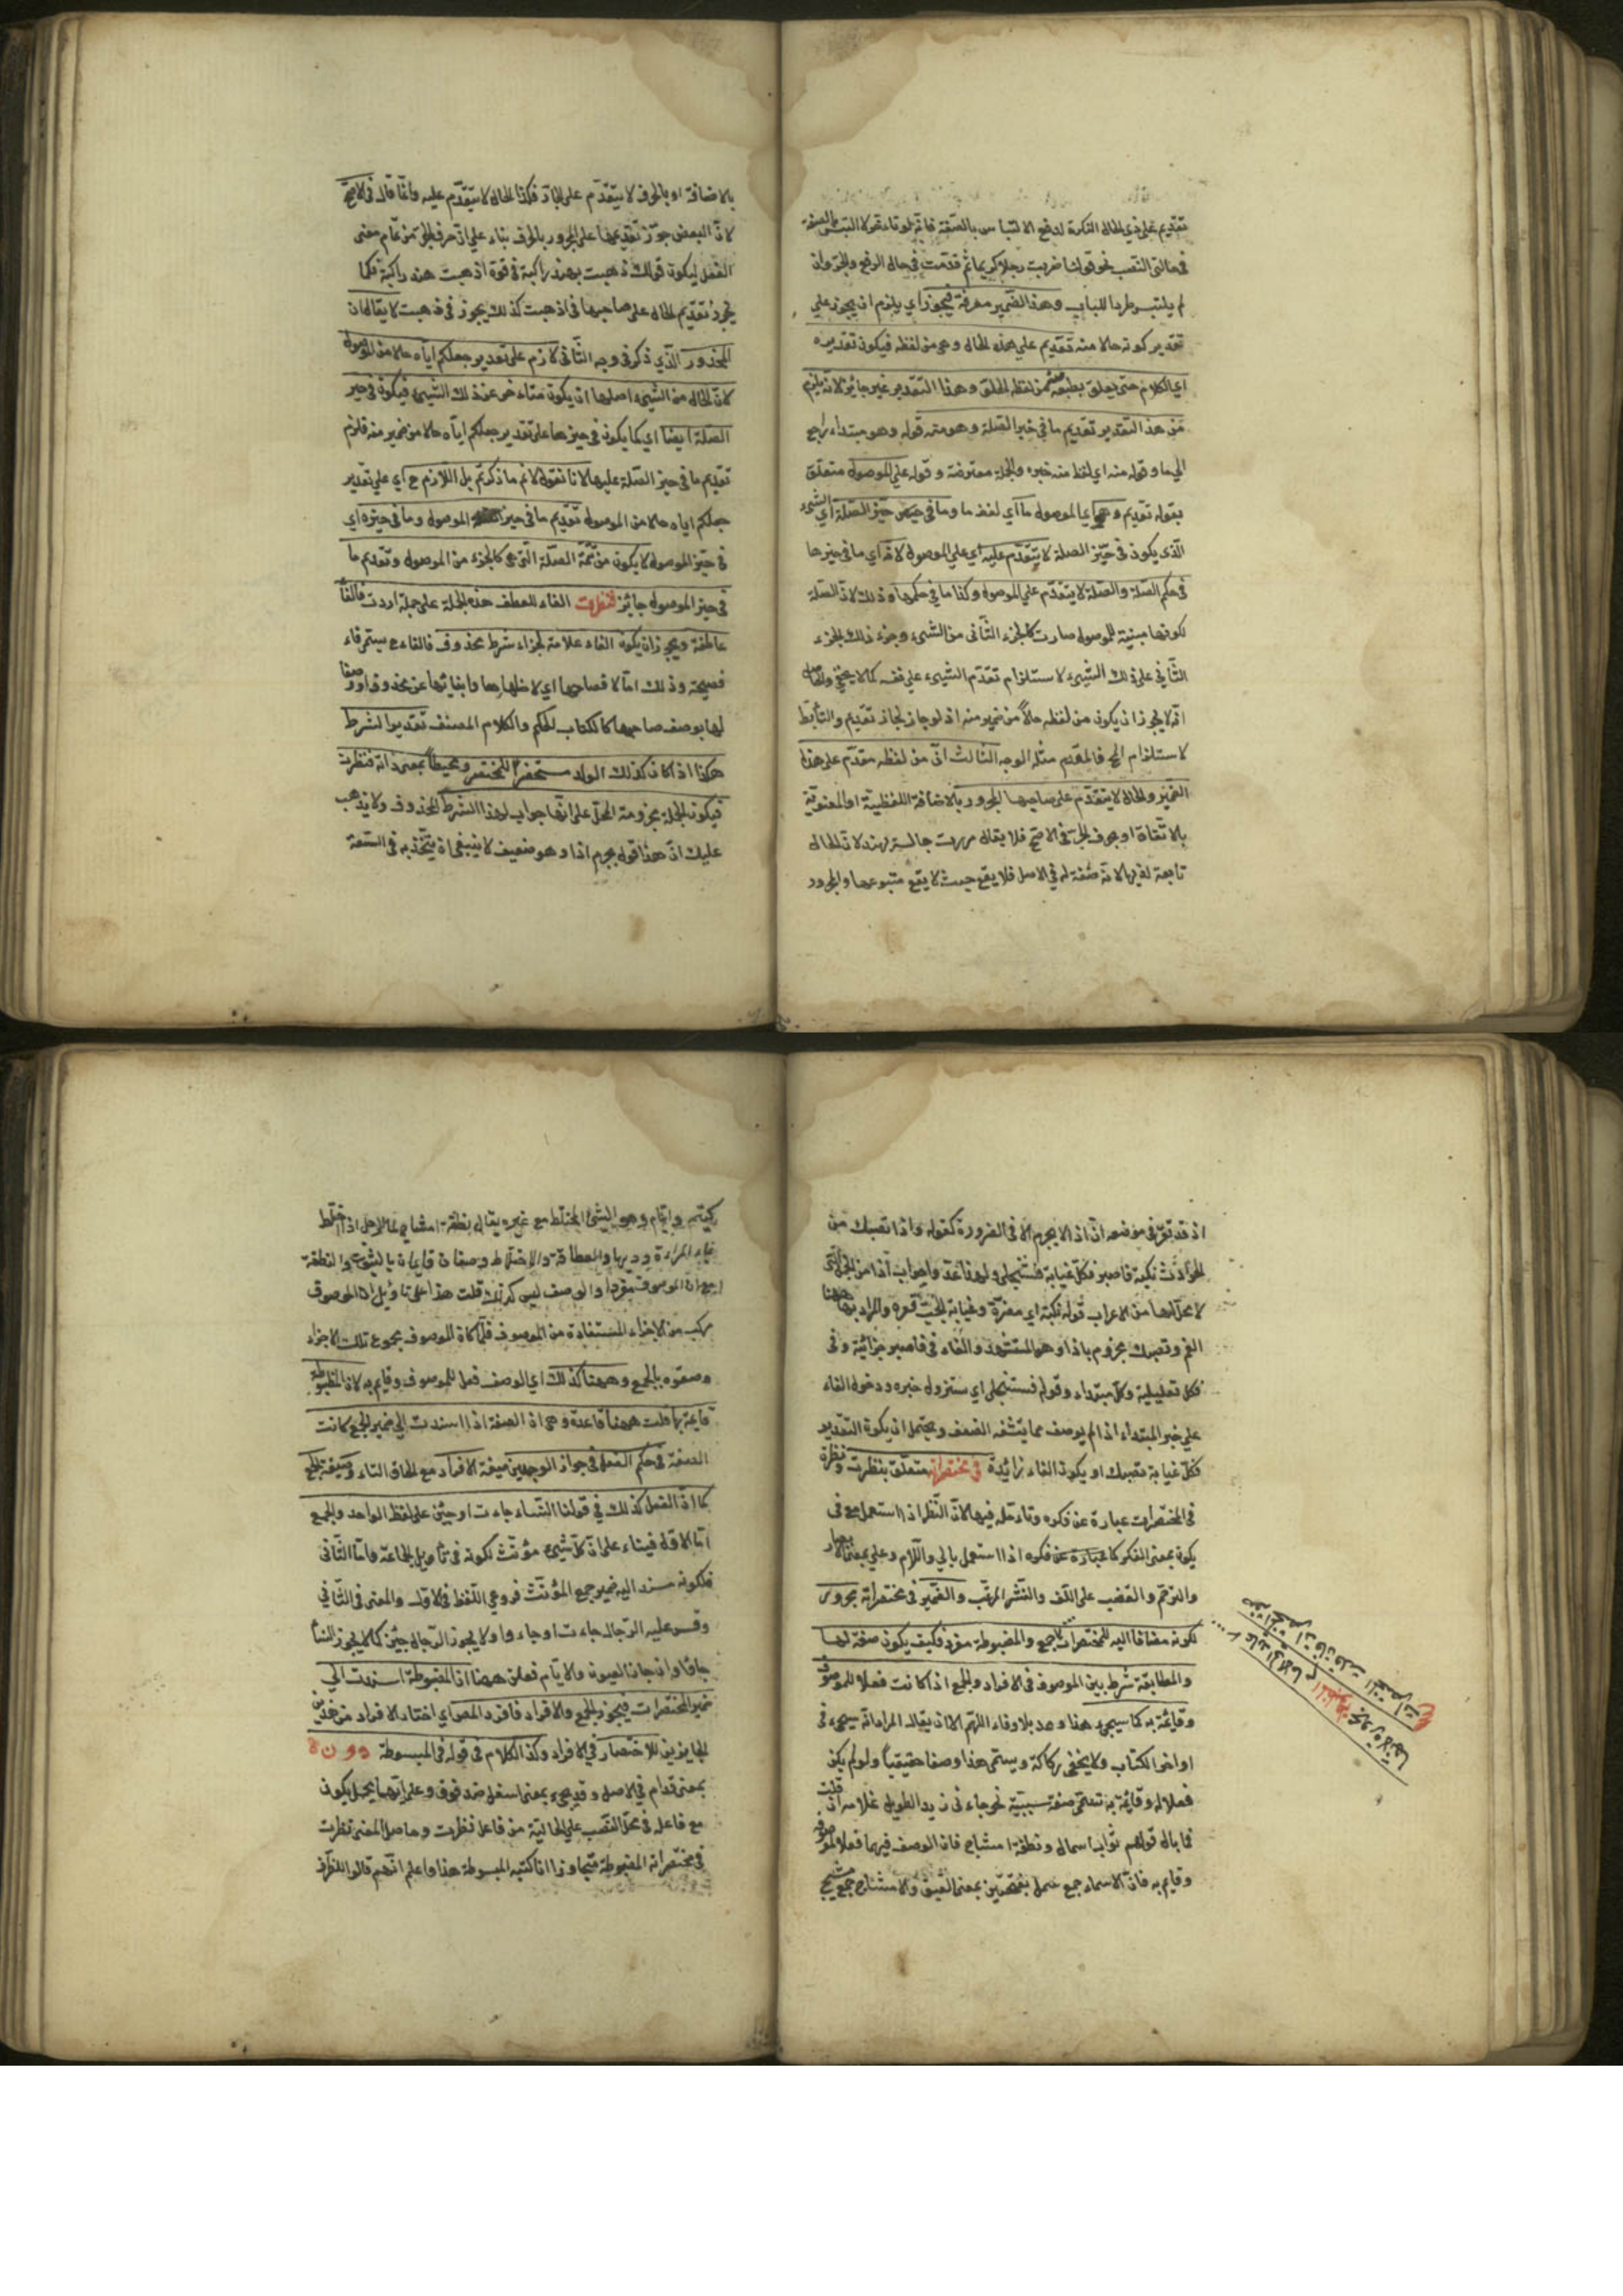 تقديم على ذي الحال النكرة لدفع الالتباس بالصفة فانه لو تاءخر لالتبس بالصفة
في حالتي النصب نحو قولنا ضربت رجلا كريما ثم قدمت في حال الرفع والجر وان
لم يلتبس طردا للباب وهذا الضمير معرفة فيجوز اي يلزم ان يجوز على
تقدير كونه حالا منه تقديم على هذه الحال وهي من لفظه فيكون تقديره
اي الكلام حتى يعلق بطبعه من لفظه الحلق وهذا التقدير غير جائز لانه يلزم
من هذا التقدير تقديم ما في خبر الصلة وهو منه قوله وهو مبتداء راجع
الى ما وقوله منه اي لفظ منه خبره والجملة معترضة وقوله على الموصول متعلق
بقوله تقديم وهي اي الموصول ما اي لفظ ما وما في حيز الصلة اي الشيء
الذي يكون في حيز الصلة لا يتقدم عليه اي على الموصول لانه اي ما في حيزها
في حكم الصلة والصلة لا يتقدم على الموصول وكذا ما في حكمها وذلك لان الصلة
لكونها مبنية للموصول صارت كالجزء الثاني من الشيء وجزء ذلك الجزء
الثاني على ذلك الشيء لاستلزام تقدم الشيء على نفسه كما لا يخفى والحاصل
انه لا يجوز ان يكون من لفظه حالا من ضمير منه اذ لو جاز لجاز تقديم والتالي بط
لاستلزام المح فالمقدم مثله الوجه الثالث ان من لفظه مقدم على هذا
الضمير والحال لا يتقدم على صاحبها المجرور بالاضافة اللفظية او المعنوية
بالاتفاق او بحرف الجر في الاصح فلا يقال مررت جالسة بهند لان الحال
تابعة لذيها لانه صفة له في الاصل فلا يقع حيث لا يقع متبوعها والمجرور
بالاضافة او بالحرف لا يتقدم على الجار فكذا الحال لا يتقدم عليه وانما قال في الاصح
لان البعض جوز تقديمها على المجرور بالحرف بناء على ان حرف الجر من تمام معنى
الفعل ليكون قولك ذهبت بهند راكبة في قوة اذهبت هند راكبة فكما
يجوز تقديم الحال على صاحبها في اذهبت كذلك يجوز في ذهبت لا يقال ان
المحذور الذي ذكر في وجه الثاني لازم على تقدير جعلكم اياه حالا من الموصول
لان الحال من الشيء اصلها ان يكون متاءخر عن ذلك الشيء فيكون في حيز
الصلة ايضا اي كما يكون في حيزها على تقدير جعلكم اياه حالا من ضمير منه فلزم
تقديم ما في حيز الصلة عليها لانا نقول لا نم ما ذكرتم بل اللازم ح اي على تقدير
جعلكم اياه حالا من الموصول تقديم ما في حيز الموصول وما في حيزه اي
في حيز الموصول لا يكون من تتمة الصلة التي هي كالجزء من الموصول وتقديم ما
في حيز الموصول جائز فنظرت الفاء للعطف هذه الجملة على جملة اردت فالفا
عاطفة ويجوز ان يكون الفاء علامة لجزاء شرط محذوف فالفاء ح يسمى فاء
فصيحة وذلك اما لافصاحها اي لاظهارها وابنائها عن محذوف او وصفا
لها بوصف صاحبها كالكتاب الحكيم والكلام المصنف تقدير الشرط
هكذا اذا كان كذلك الولد مستحفرا للمختصر ومحيطا بمعرداته فنظرت
فيكون الجملة مجزومة المحل على انها جواب لهذا الشرط المحذوف ولا يذهب
عليك ان هذا قول بجزم اذا وهو ضعيف لا ينبغي ان يتخذ به في السعة
اذ قد تقرر في موضعه ان اذا لا يجزم الا في الضرورة كقوله واذا تصبك من
الحوادث نكبة فاصبر فكل غيابة فستنجلي ولهذا عد واجواب اذا من الجمل التي
لا محل لها من الاعراب قوله نكبة اي مضرة وغيابة الجب قعره والمراد بها ههنا
الغم وتصبك مجزوم باذا وهو المستشهد والفاء في فاصبر جزائية وفي
فكل تعليلية وكل مبتداء وقوله فستنجلي اي ستزول خبره ودخول الفاء
على خبر المبتداء اذا لم يوصف مما يتشفه الضعف ويحتمل ان يكون التقدير
فكل غيابة تصبك او يكون الفاء زائدة في مختصراته متعلق بنظرت ونظره
في المختصرات عبارة عن فكره وتاءمله فيها لان النظر اذا استعمل مع في
يكون بمعنى الفكر كما عبارة عن فكره اذا استعمل بالى واللام وعلى بمعنى الابصار
والترحم والغضب على اللف والنشر المرتب والضمير في مختصراته مجرور
لكونه مضافا اليه للمختصرات جمع والمضبوطة مفرد فكيف يكون صفة لها
والمطابقة شرط بين الموصوف في الافراد والجمع اذا كانت فعلا للموصوف
وقائمة به كما سيجيء هذا وعد بلا وفاء اللهم الا ان يقال المراد انه سيجيء في
اواخر الكتاب ولا يخفى ركاكة ويسمى هذا وصفا حقيقيا ولو لم يكن
فعلا له وقائمة به تسمى صفة سببية نحو جاءني زيد الطويل غلامه فان قلت
فما بال قولهم ثواب اسمال ونطفة امشاج فان الوصف فيهما فعلا للموصوف
وقايم به فان الاسماء جمع سمل بفتحتين بمعنى العتيق والامشاج جمع مشيج
كيتيم وايتام وهو الشيء المختلط مع غيره يقال نطفة امشاج لماء الرجل اذا اختلط
بماء المراءة ودمها والعطاقة والاختلاط وصفان قايمان بالثوب والنطفة
مع ان الموصوف مفردا والوصف ليس كذلك قلت هذا على تاويل ان الموصوف
مركب من الاجزاء المستفادة من الموصوف فلما كان الموصوف مجموع تلك الاجزاء
وصفوه بالجمع وههنا كذلك اي الوصف فعل للموصوف وقايم به لان المضبوطة
قايمة بها قلت ههنا قاعدة وهي ان الصفة اذا اسندت الى ضمير الجمع كانت
الصفة في حكم الفعل في جواز الوجهين صيغة الافراد مع الحاق التاء وصيغة الجمع
كما ان الفعل كذلك في قولنا النساء جاءت او جئن على لفظ الواحد والجمع
اما الاول فبناء على ان كل شيء مؤنث لكونه في تاءويل الجماعة واما الثاني
فلكونه مسند اليه ضمير جمع المؤنث فروعي اللفظ في الاول والمعنى في الثاني
وقس عليه الرجال جاءت او جاءوا ولا يجوز الرجال جئن كما لا يجوز النساء
جاؤا وان جاز العيون والايام فعلن ههنا اذ المضبوطة اسندت الى
ضمير المختصرات فيجوز الجمع والافراد فافرد المص اي اختار الافراد من هذين
الجايزين للاختصار في الافراد وكذا الكلام في قوله في المبسوطة دون
بمعنى قدام في الاصل وقد يجيء بمعنى اسفل ضد فوق وعلى انهما يحمل يكون
مع فاعله في محل النصب على الحالية من فاعل فنظرت وحاصل المعنى نظرت
في مختصراته المضبوطة متجاوزا انا كتبه المبسوطة هذا واعلم انهم قالوا الظرف